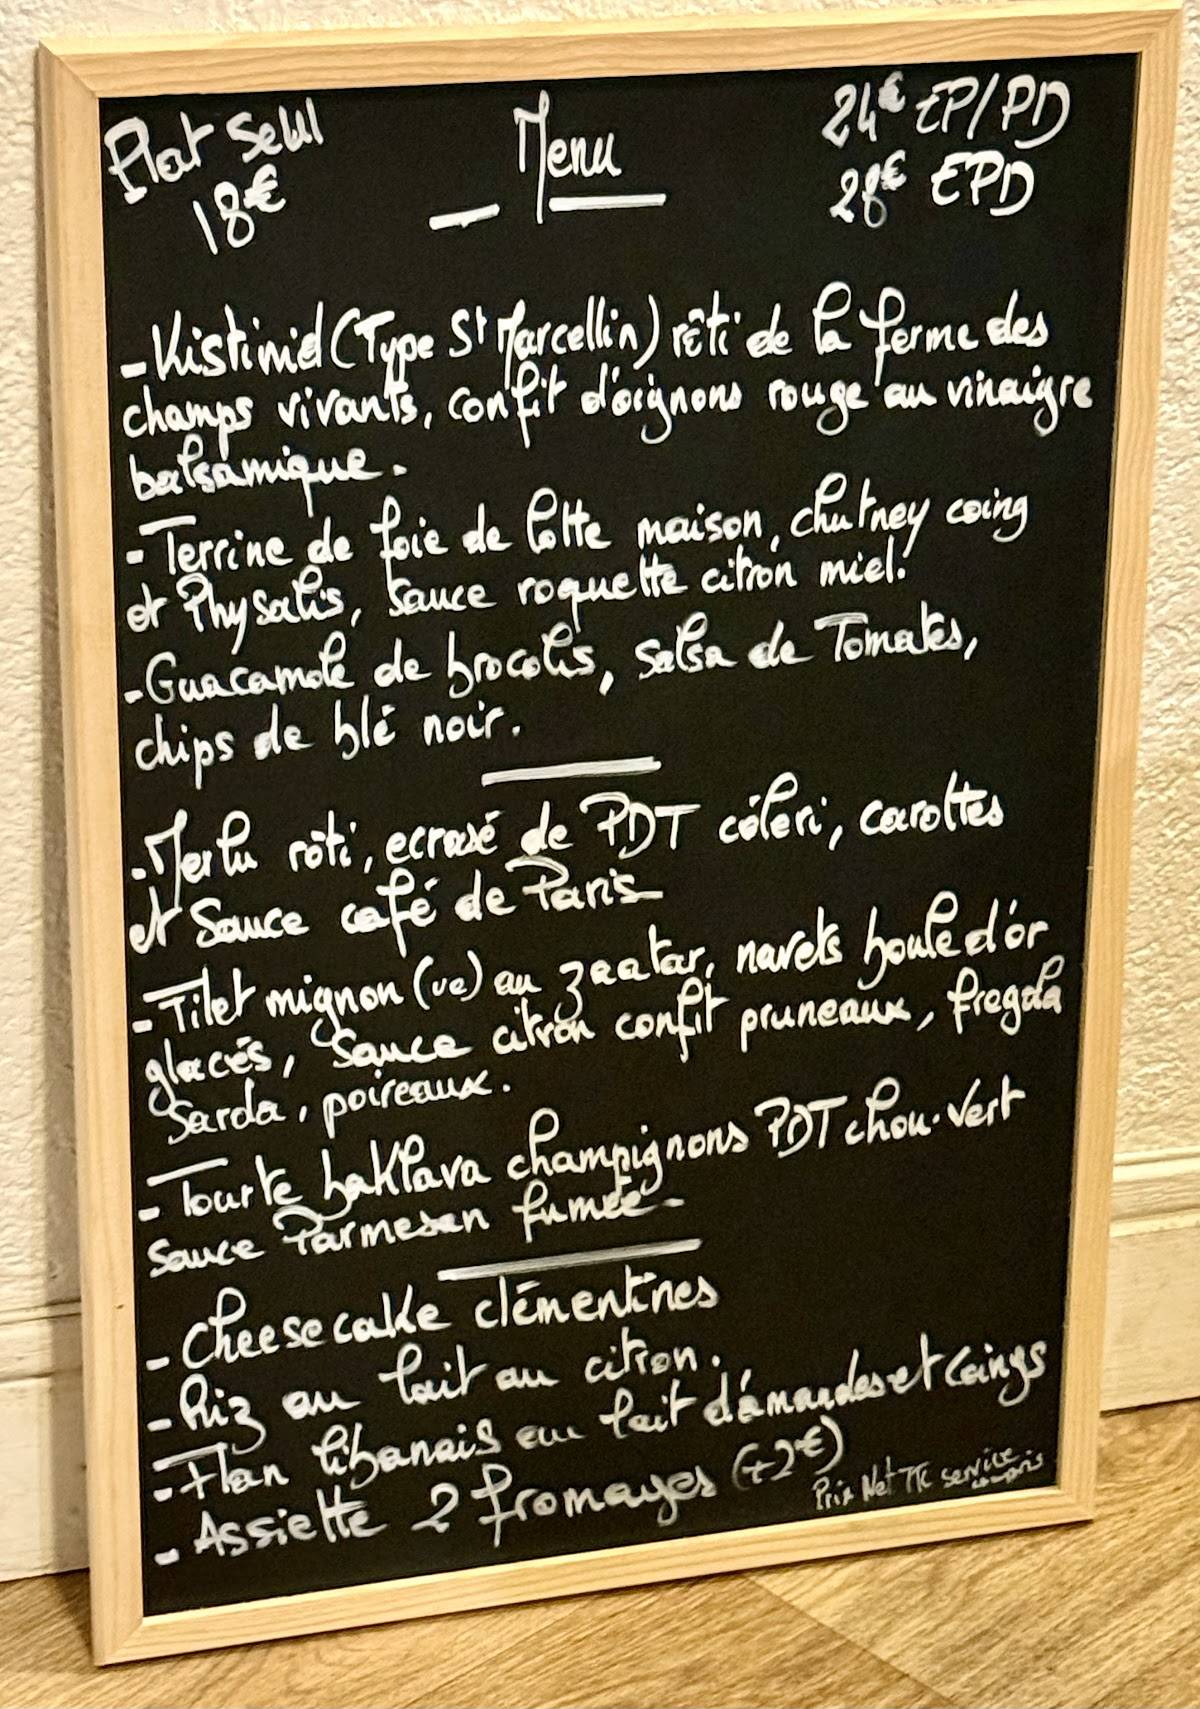 Plat Seul
18€
Menu
24€ EP/PD
28€ EPD
- Kistinid (Type St Marcellin) rôti de la ferme des
champs vivants, confit d'oignons rouge au vinaigre
balsamique.
- Terrine de foie de lotte maison, chutney coing
et Physalis, Sauce roquette citron miel.
- Guacamole de brocolis, Salsa de Tomates,
chips de blé noir.
- Merlu rôti, ecrasé de PDT céleri, carottes
et Sauce café de Paris
- Filet mignon (ve) au zaatar, navets boule d'or
glacés, Sauce citron confit pruneaux, fregola
Sarda, poireaux.
- Tourte baklava champignons PDT chou-vert
Sauce Parmesan fumée
- Cheese cake clémentines
- Riz au lait au citron.
- Flan libanais au lait d'amandes et Coings
- Assiette 2 fromages (+2€)
Prix Net TTC service
compris